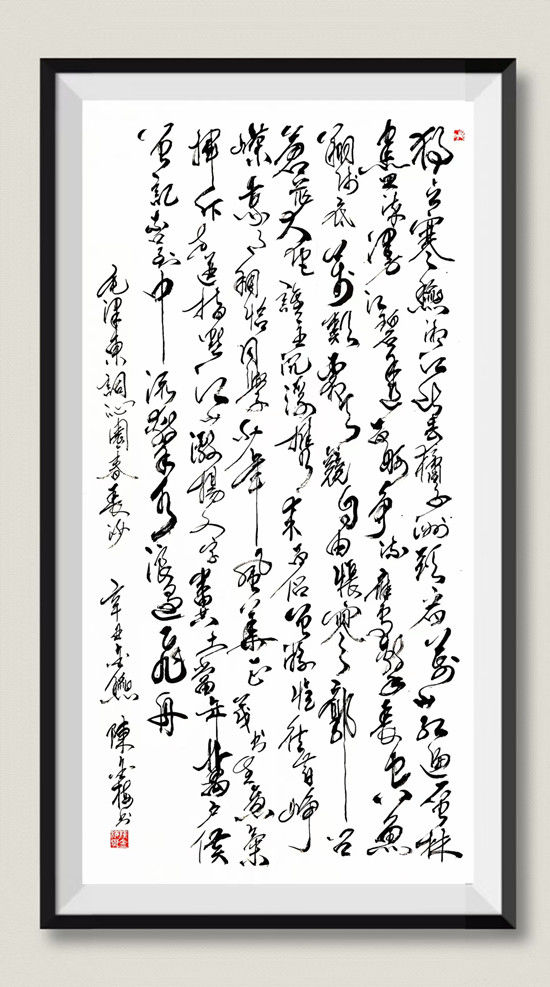 獨立寒秋湘江北去橘子洲頭看萬山紅遍層林
盡染漫江碧透百舸争流鷹擊長空魚
翔淺底萬類霜天競自由悵寥廓問
蒼茫大地誰主沉浮攜來百侶曾游憶往昔崢
嶸歲月稠恰同學少年風華正茂书生意氣
揮斥方遒指點江山激揚文字糞土當年萬户侯
曾記否到中流擊水浪遏飛舟
毛澤東詞沁園春長沙 辛丑金秋 陳金梅书